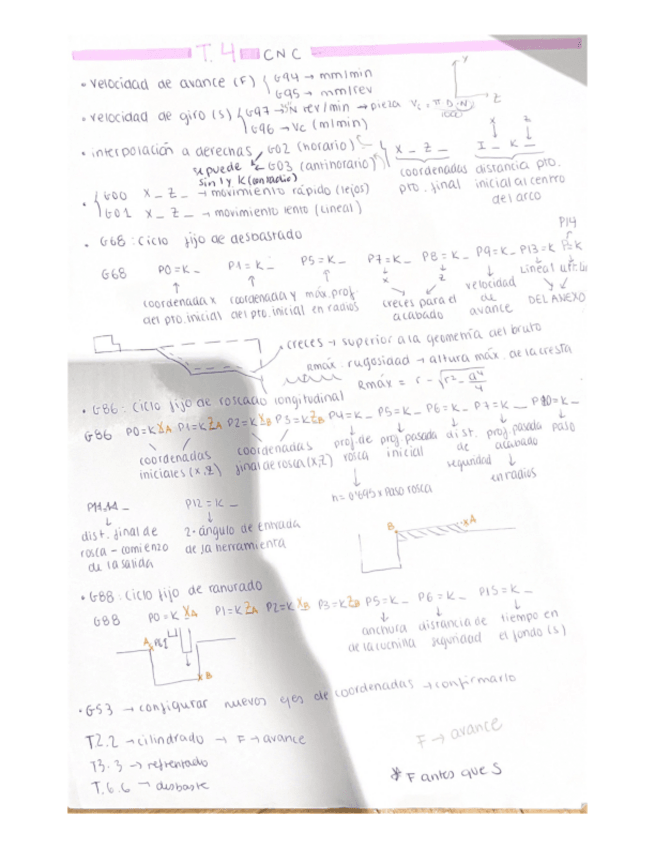 T.4 CNC
• velocidad de avance (F) { G94 → mm/min
G95 → mm/rev
• velocidad de giro (S) { G97 → rev/min → pieza Vc = π·D·N/1000
G96 → Vc (m/min)
Y
Z
• interpolación a derechas G02 (horario)
G03 (antihorario)
se puede sin I y K (con radio)
X _ Z _ I _ K _
X Z
coordenadas pto. final
distancia pto. inicial al centro del arco
• { G00 X _ Z _ → movimiento rápido (lejos)
G01 X _ Z _ → movimiento lento (lineal)
• G68: ciclo fijo de desbastado
P14
G68 P0=K_ P1=K_ P5=K_ P7=K_ P8=K_ P9=K_ P13=K P=K
X Z
coordenada x del pto. inicial
coordenada y del pto. inicial
máx. prof. en radios
creces para el acabado
velocidad de avance
DEL ANEXO
creces → superior a la geometría del bruto
Rmáx. rugosidad → altura máx. de la cresta
Rmáx = r - √r² - a²/4
• G86: ciclo fijo de roscado longitudinal
G86 P0=K XA P1=K ZA P2=K XB P3=K ZB P4=K_ P5=K_ P6=K_ P7=K_ P10=K_
coordenadas iniciales (x,z)
coordenadas final de rosca (x,z)
prof. de rosca
prof. pasada inicial
dist. de seguridad
prof. pasada acabado
paso
en radios
h = 0'695 x paso rosca
P12=K_
dist. final de rosca - comienzo de la salida
2· ángulo de entrada de la herramienta
B
xA
• G88: ciclo fijo de ranurado
G88 P0=K XA P1=K ZA P2=K XB P3=K ZB P5=K_ P6=K_ P15=K_
anchura de la cuchilla
distancia de seguridad
tiempo en el fondo (s)
A
xB
• G53 → configurar nuevos ejes de coordenadas → confirmarlo
T.2.2 → cilindrado → F → avance
T3.3 → refrentado
T.6.6 → desbaste
F → avance
* F antes que S